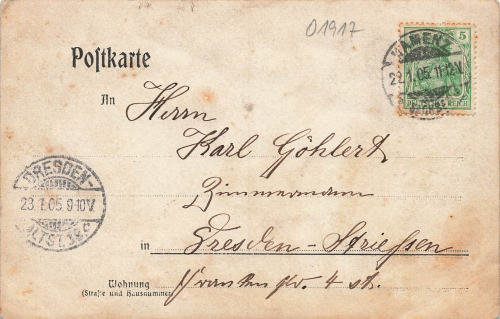 01917
5
KAMENZ
Postkarte
23.1.05.11-12V.
DEUTSCHES REICH
An
Herrn
Karl Göhlert
Zimmermann
DRESDEN-
23.1.05.9-10V.
ALTST.
in Dresden-Striessen
Wohnung
(Straße und Hausnummer)
4 st.